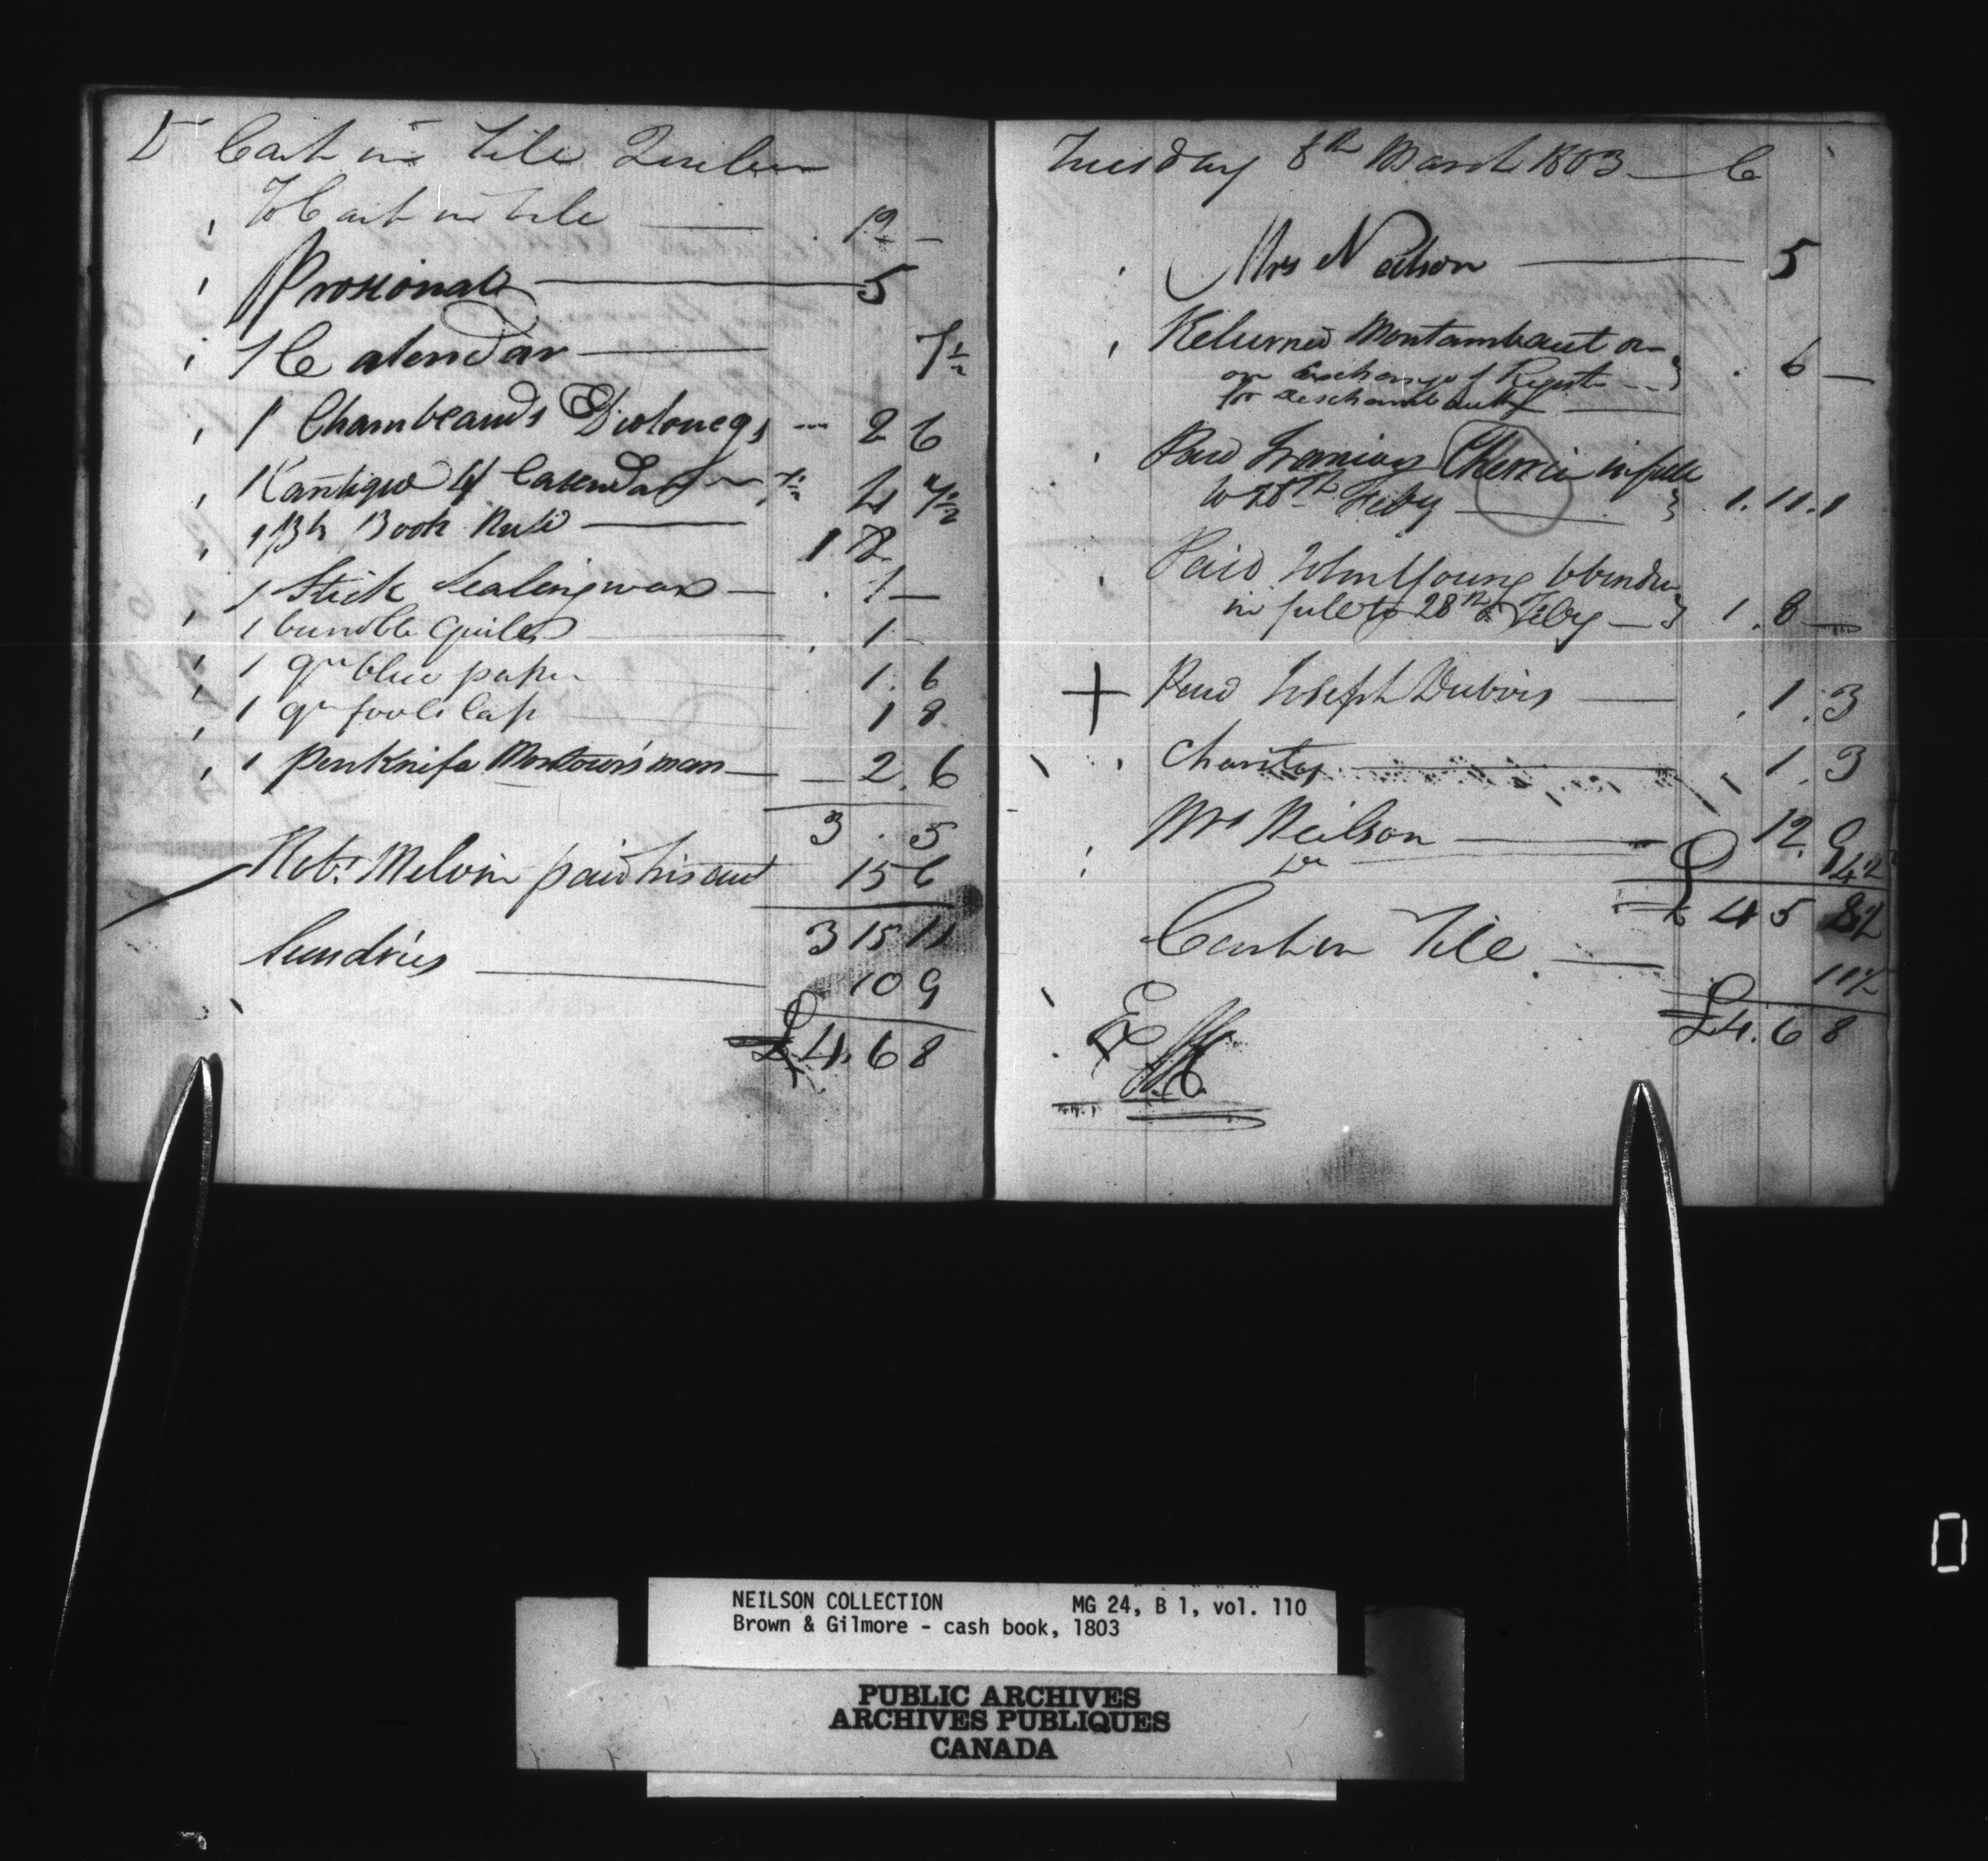 Dr Cash in Tile Quebec
To Cash in Tile 12 –
Prosionals 5
1 Calendar 7½
1 Chambeauds Dialouegs 2 6
1 Cantique 4/ Calendar 7½ 4 7½
1 Bk Book Ruld 1 12
1 Stick Sealingwax . 1 –
1 bundle Quiles . 1 –
1 qr blue paper 1. 6
1 qr foolsCap 1 8
1 penknife man 2. 6
3 . 5
Robt Melvin paid his acct 15 6
3 15 11
Sundries 10 9
£4. 6 8
Tuesday 8th March 1803 C
Mrs Neilson 5
Returned Montambaut on
on exchange of Register . 6 –
for Deschambault
Paid Francois Cherrier in full
to 28th Feby 1. 11. 1
Paid John Young
in full to 28th Feby 1. 8 –
+ Paid Joseph Dubois . 1. 3
Charity 1. 3
Mrs Neilson 12. 9
Do
£ 4 5 8½
Cash in Tile 11½
£4. 6 8
NEILSON COLLECTION MG 24, B 1, vol. 110
Brown & Gilmore - cash book, 1803
PUBLIC ARCHIVES
ARCHIVES PUBLIQUES
CANADA